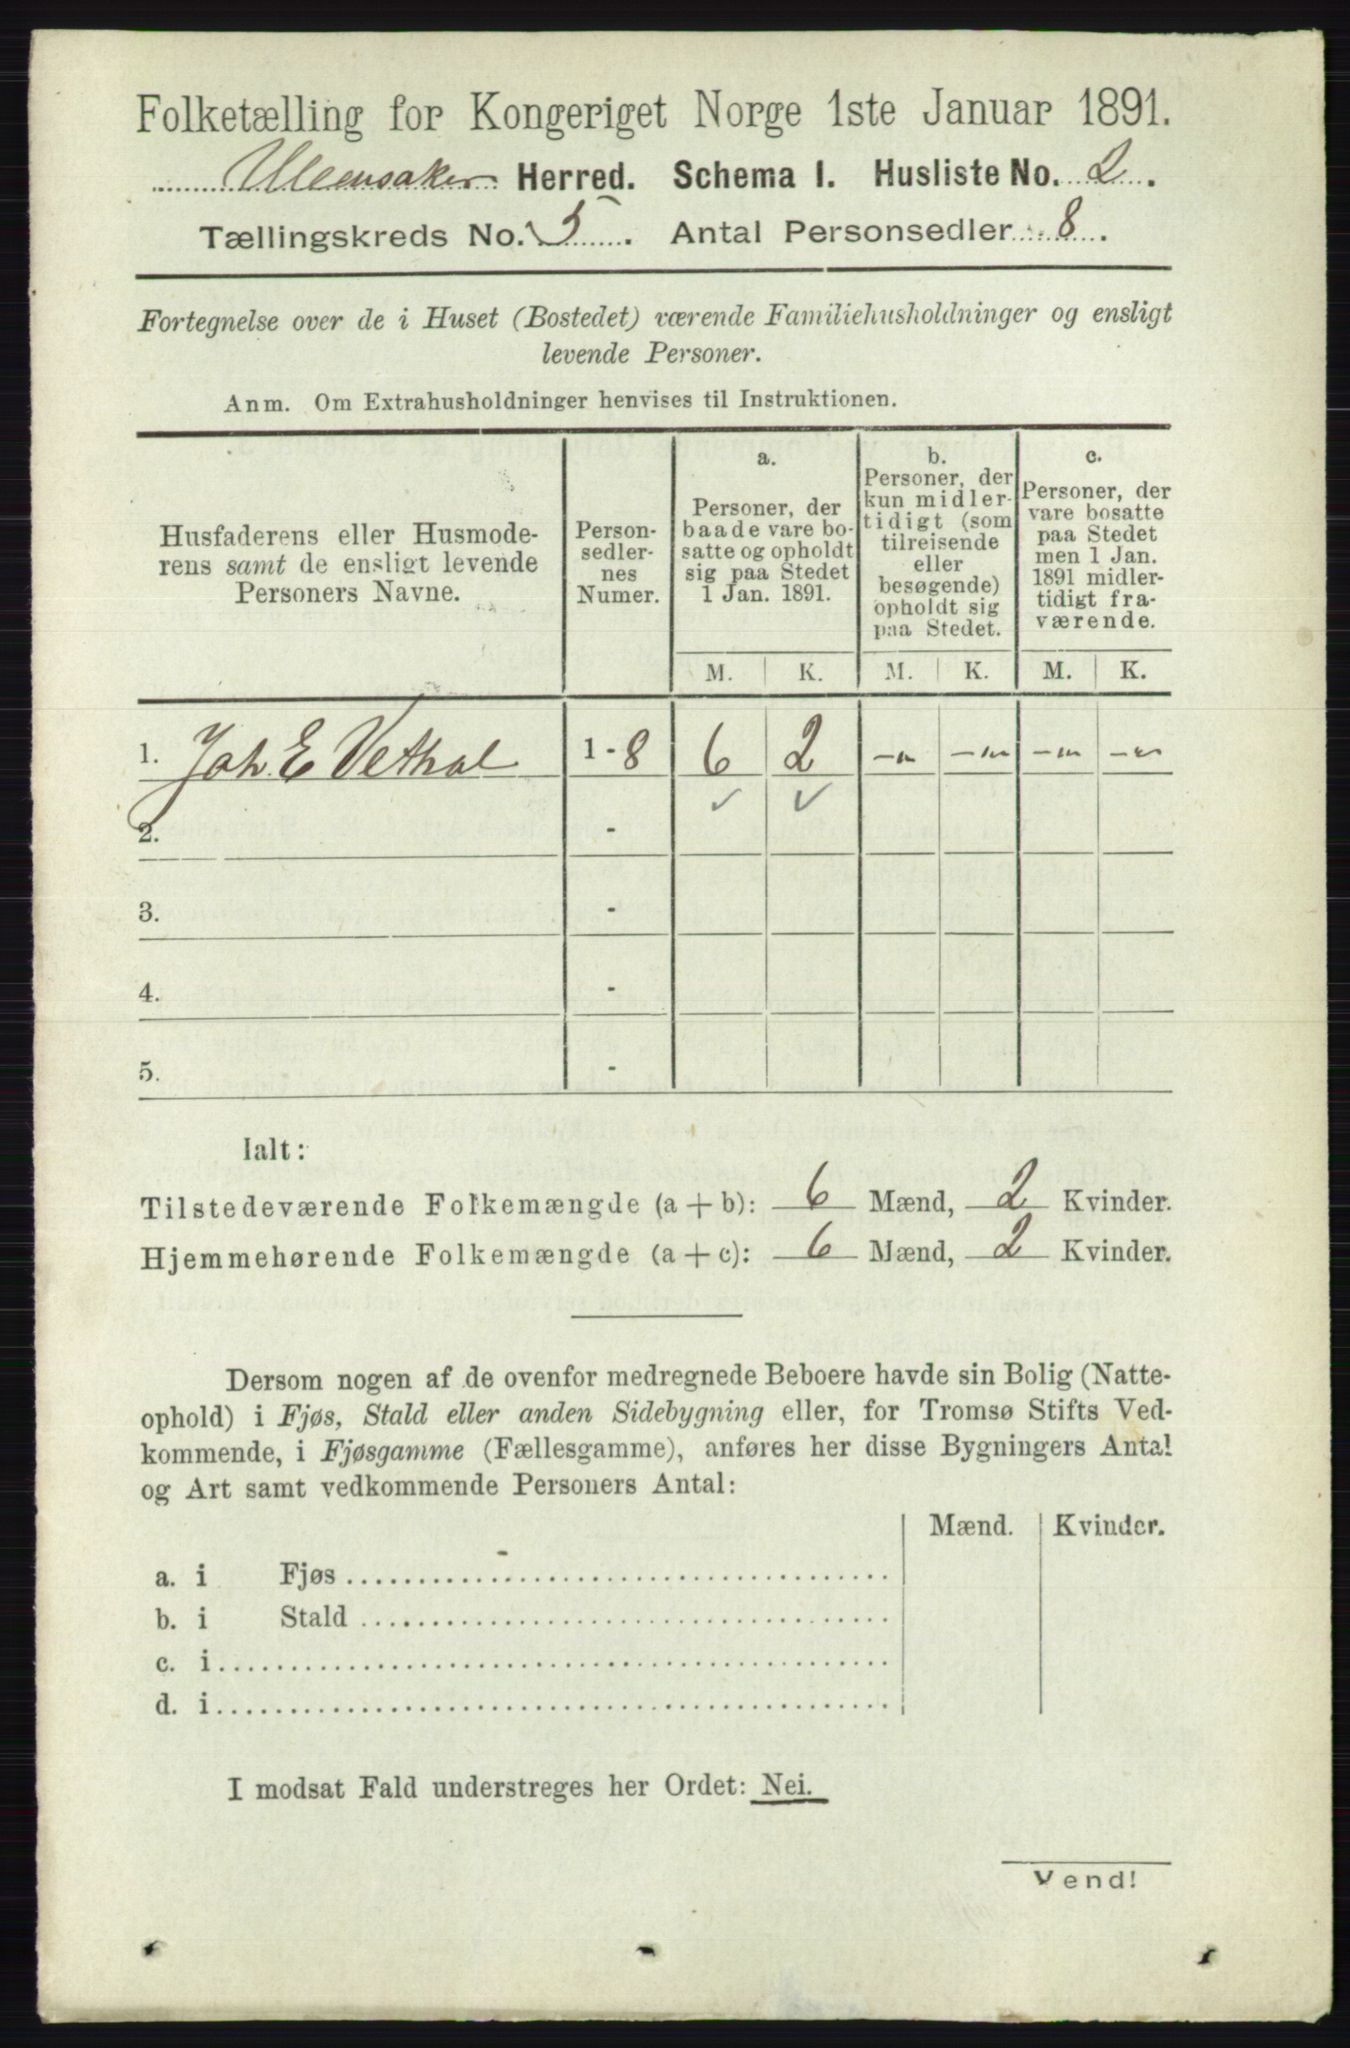 Folketælling for Kongeriget Norge 1ste Januar 1891.
Ullensaker Herred. Schema I. Husliste No. 2.
Tællingskreds No. 5. Antal Personsedler 8.
Fortegnelse over de i Huset (Bostedet) værende Familiehusholdninger og ensligt
levende Personer.
Anm. Om Extrahusholdninger henvises til Instruktionen.
Husfaderens eller Husmode-
rens samt de ensligt levende
Personers Navne.
Person-
sedler-
nes
Numer.
a.
Personer, der
baade vare bo-
satte og opholdt
sig paa Stedet
1 Jan. 1891.
b.
Personer, der
kun midler-
tidigt (som
tilreisende
eller
besøgende)
opholdt sig
paa Stedet.
c.
Personer, der
vare bosatte
paa Stedet
men 1 Jan.
1891 midler-
tidigt fra-
værende.
M. K. M. K. M. K.
1. Joh. E Vethal 1 - 8 6 2 -"- -"- -"- -"-
2. -
3. -
4. -
5. -
Ialt:
Tilstedeværende Folkemængde (a + b): 6 Mænd, 2 Kvinder.
Hjemmehørende Folkemængde (a + c): 6 Mænd, 2 Kvinder.
Dersom nogen af de ovenfor medregnede Beboere havde sin Bolig (Natte-
ophold) i Fjøs, Stald eller anden Sidebygning eller, for Tromsø Stifts Ved-
kommende, i Fjøsgamme (Fællesgamme), anføres her disse Bygningers Antal
og Art samt vedkommende Personers Antal:
Mænd. Kvinder.
a. i Fjøs
b. i Stald
c. i
d. i
I modsat Fald understreges her Ordet: Nei.
Vend!